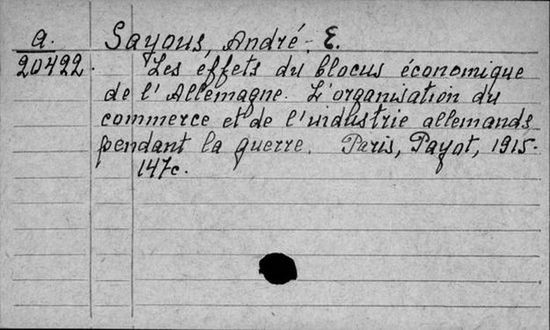 a.
20422.
Sayous, André-E.
Les effets du blocus économique
de l'Allemagne. L'organisation du
commerce et de l'industrie allemands
pendant la guerre. Paris, Payot, 1915.
147c.